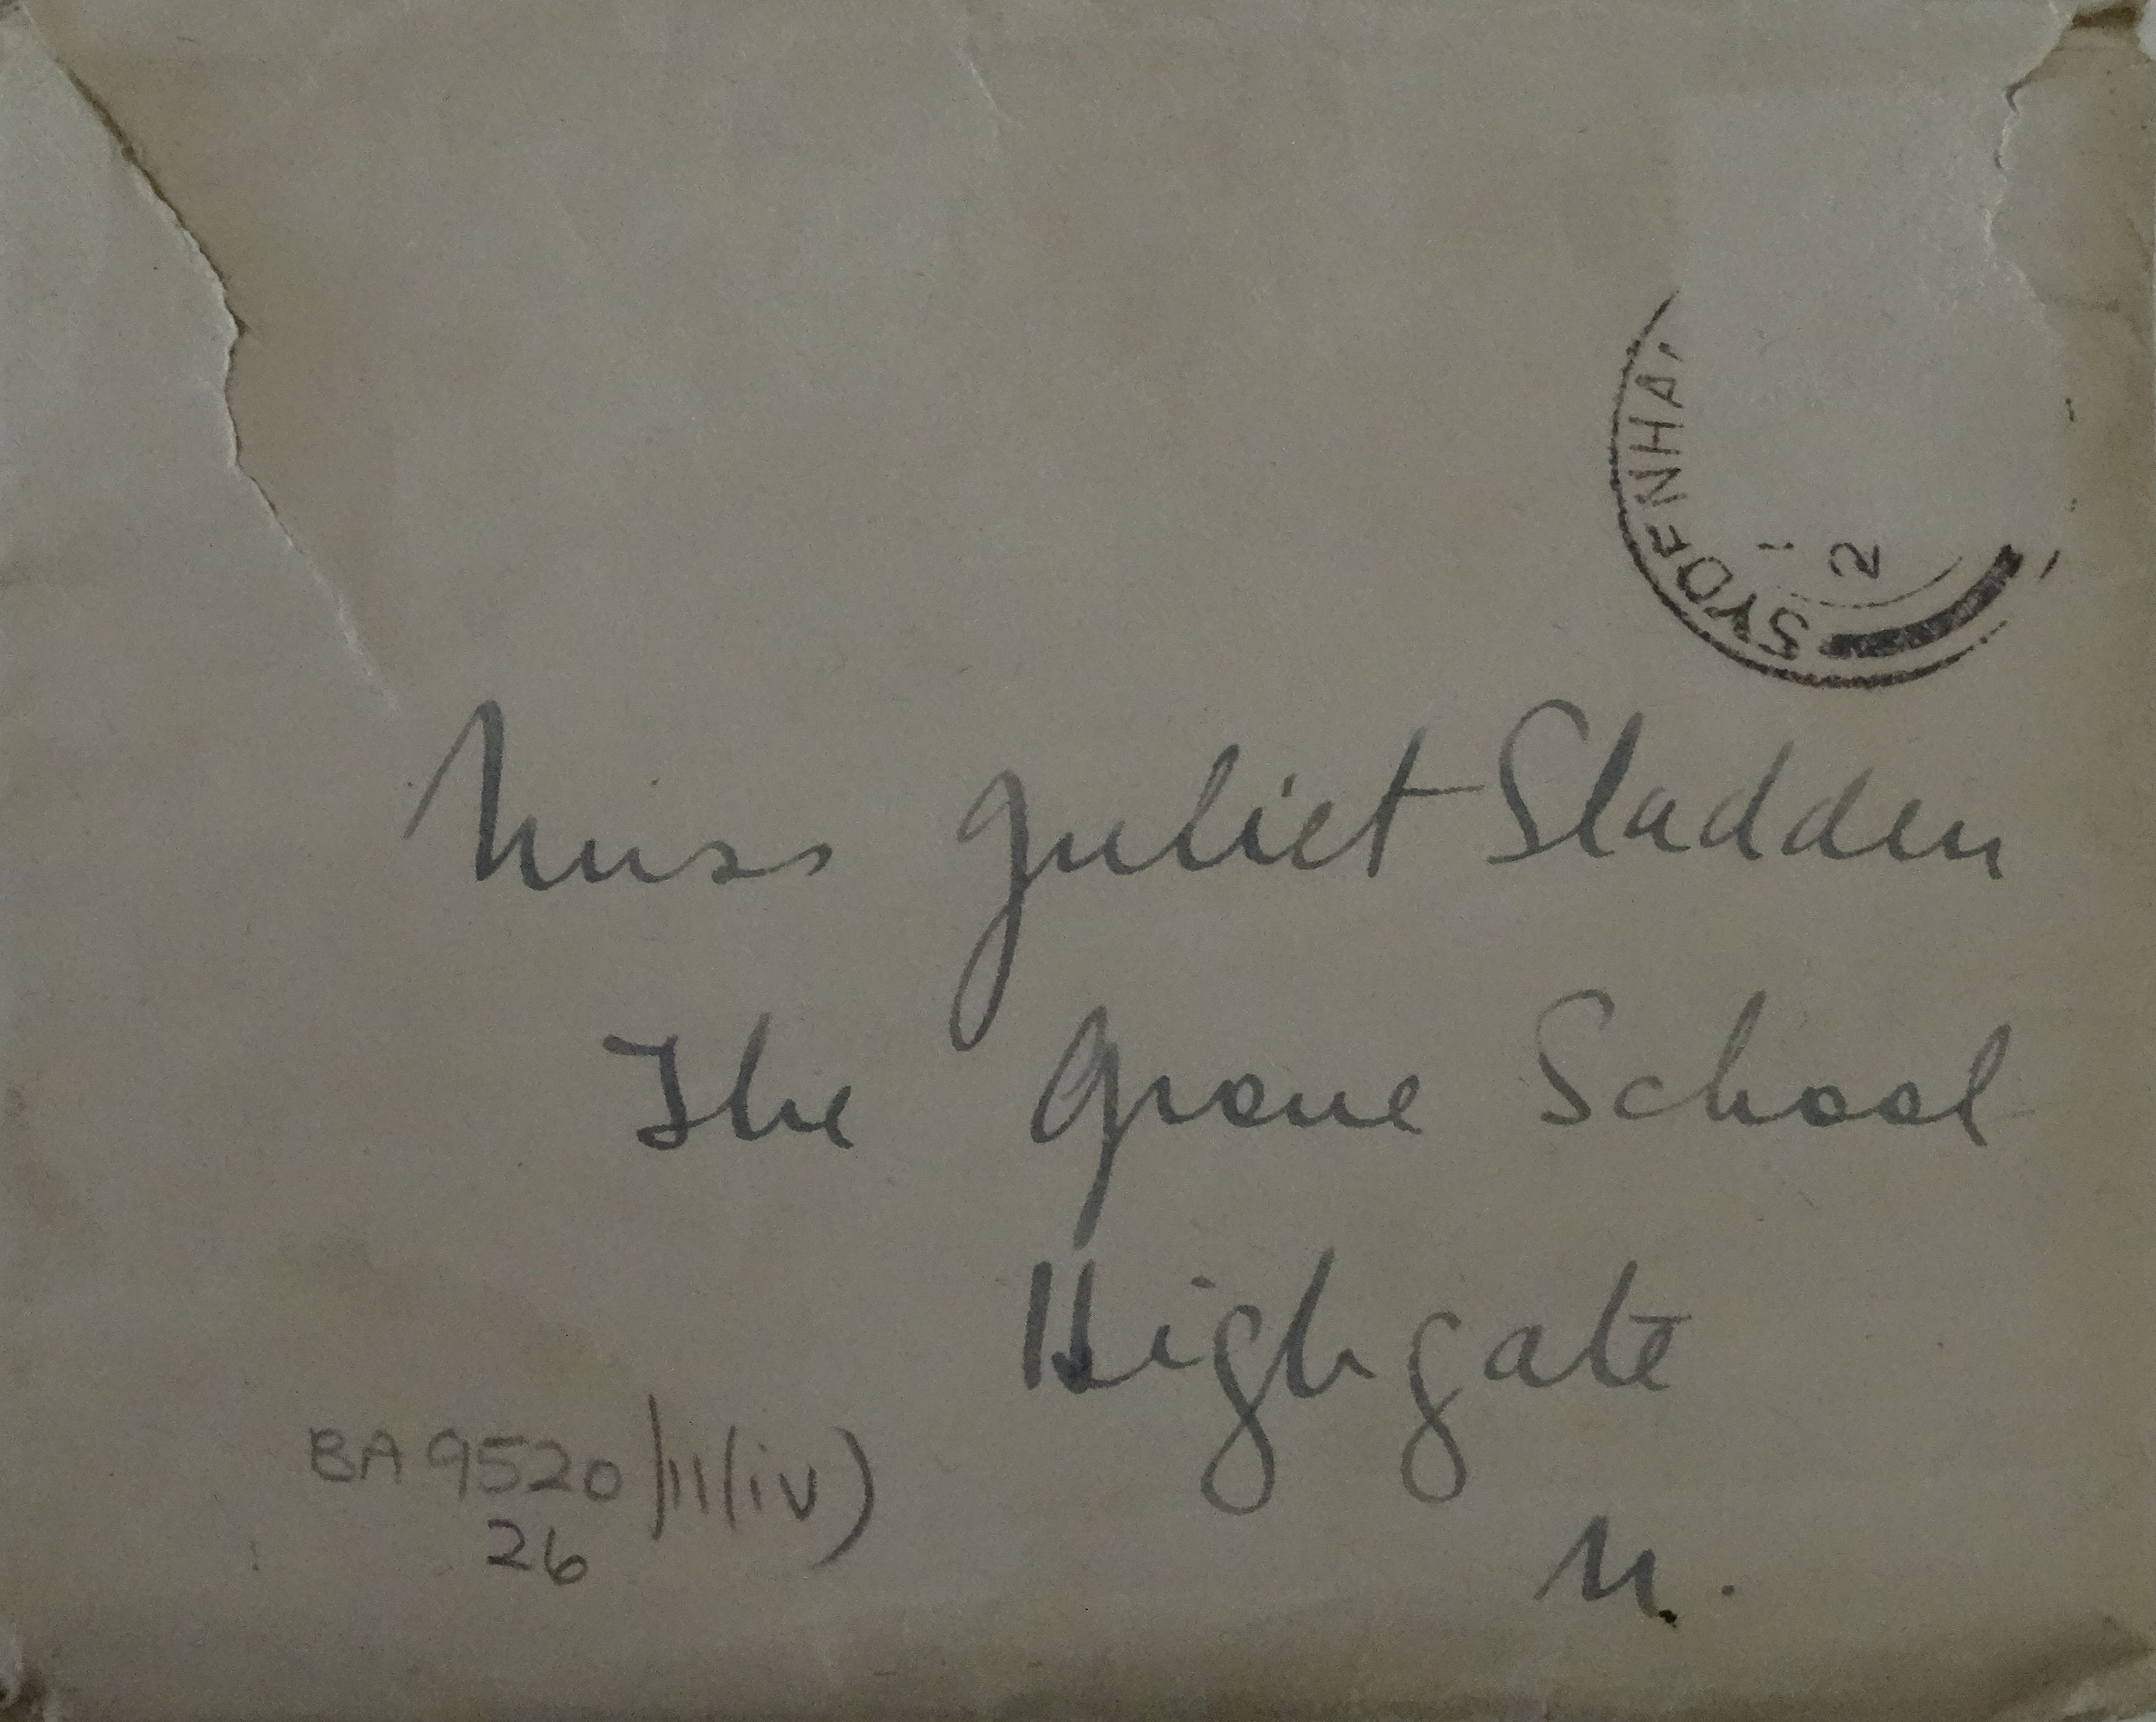 SYDENHA
2
Miss Juliet Sladden
The Grove School
Highgate
N.
BA 9520/11(iv)
26